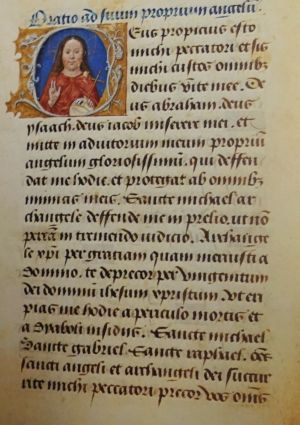 Oratio ad suum proprium angelū.
Eus propicius esto
michi peccatori et sis
michi custos omnibz
diebus vite mee. De
us abraham. deus
ysaach. deus iacob miserere mei. et
mitte in adiutorium meum propriū
angelum gloriosissimū. qui deffen
dat me hodie. et protegat ab omnibz
inimicis meis. Sancte michael ar
changele deffende me in prelio. ut nō
peream in tremendo iudicio. Archange
le xpi per gratiam quam meruisti a
domino. te deprecor per unigenitum
dei dominū ihesum xpristum. ut eri
pias me hodie a periculo mortis et
a dyaboli insidiis. Sancte michael
Sancte gabriel. Sancte raphael. oēs
sancti angeli et archangeli dei succur
rite michi peccatori precor vos omēs